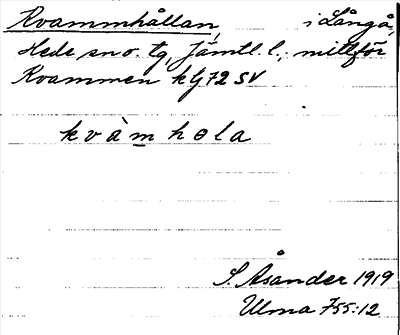 Kvammhållan, i Långå,
Hede sn o. tg, Jämtl. l.; mittför
Kvammen kfj 72 SV
kvàmhɵla
S. Åsander 1919
Ulma 755:12